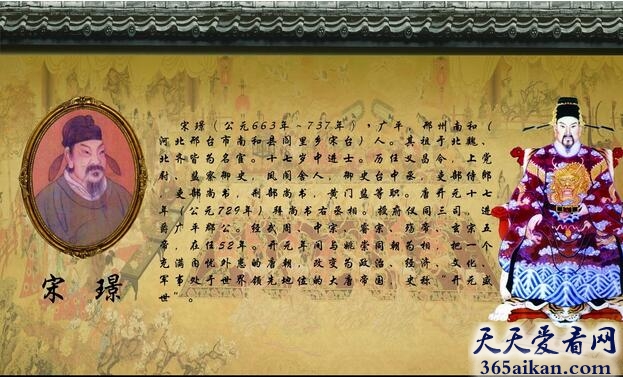 宋璟(公元663年~737年),广平、邢州南和(
河北邢台市南和县阎里乡宋台)人。其祖于北魏、
北齐皆为名宦。十七岁中进士。历任义昌令、上党
尉、监察御史、凤阁舍人、御史台中丞、吏部侍郎
、吏部尚书、刑部尚书,黄门监等职。唐开元十七
年(公元729年)拜尚书右丞相。授府仪同三司,进
爵广平郡公。经武周、中宗、睿宗、殇帝、玄宗五
帝,在任52年。开元年间与姚崇同朝为相,把一个
充满内忧外患的唐朝,改变为政治、经济、文化、
军事处于世界领先地位的大唐帝国,史称"开元盛
世"。
宋璟
天天爱看网
365aikan.com